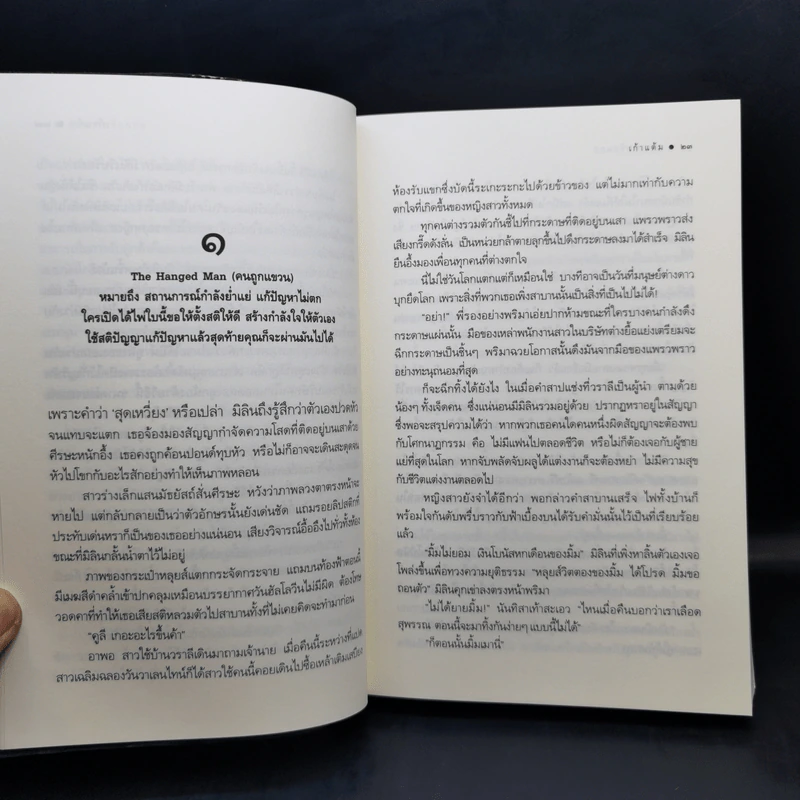 ๑
The Hanged Man (คนถูกแขวน)
หมายถึง สถานการณ์กำลังย่ำแย่ แก้ปัญหาไม่ตก
ใครเปิดได้ไพ่ใบนี้ขอให้ตั้งสติให้ดี สร้างกำลังใจให้ตัวเอง
ใช้สติปัญญาแก้ปัญหาแล้วสุดท้ายคุณก็จะผ่านมันไปได้
เพราะคำว่า 'สุดเหวี่ยง' หรือเปล่า มิลินถึงรู้สึกว่าตัวเองปวดหัว
จนแทบจะแตก เธอจ้องมองสัญญากำจัดความโสดที่ติดอยู่บนเสาด้วย
ศีรษะหนักอึ้ง เธอคงถูกค้อนปอนด์ทุบหัว หรือไม่ก็อาจจะเดินสะดุดจน
หัวไปโขกกับอะไรสักอย่างทำให้เห็นภาพหลอน
สาวร่างเล็กแสนมัธยัสถ์สั่นศีรษะ หวังว่าภาพลวงตาตรงหน้าจะ
หายไป แต่กลับกลายเป็นว่าตัวอักษรนั้นยังเด่นชัด แถมรอยลิปสติกที่
ประทับเด่นหราก็เป็นของเธออย่างแน่นอน เสียงวิจารณ์อื้ออึงไปทั่วทั้งห้อง
ขณะที่มิลินกลั้นน้ำตาไว้ไม่อยู่
ภาพของกระเป๋าหลุยส์แตกกระจัดกระจาย แถมบนท้องฟ้าตอนนี้
มีเมฆสีดำคล้ำเข้าปกคลุมเหมือนบรรยากาศวันฮัลโลวีนไม่มีผิด ต้องโทษ
วอดคาที่ทำให้เธอเสียสติหลวมตัวไปสาบานทั้งที่ไม่เคยคิดจะทำมาก่อน
"คูลี เกอะอะไรขึ้นค้า"
อาพอ สาวใช้บ้านวราลีเดินมาถามเจ้านาย เมื่อคืนนี้ระหว่างที่แปด
สาวเฉลิมฉลองวันวาเลนไทน์ก็ได้สาวใช้คนนี้คอยเดินไปซื้อเหล้าเติมเสบียง
เก้าแต้ม ● ๒๓
ห้องรับแขกซึ่งบัดนี้ระเกะระกะไปด้วยข้าวของ แต่ไม่มากเท่ากับความ
ตกใจที่เกิดขึ้นของหญิงสาวทั้งหมด
ทุกคนต่างรวมตัวกันชี้ไปที่กระดาษที่ติดอยู่บนเสา แพรวพราวส่ง
เสียงกรี๊ดดังลั่น เป็นหน่วยกล้าตายลุกขึ้นไปดึงกระดาษลงมาได้สำเร็จ มิลิน
ยืนอึ้งมองเพื่อนทุกคนที่ต่างตกใจ
นี่ไม่ใช่วันโลกแตกแต่ก็เหมือนใช่ บางทีอาจเป็นวันที่มนุษย์ต่างดาว
บุกยึดโลก เพราะสิ่งที่พวกเธอเพิ่งสาบานนั้นเป็นสิ่งที่เป็นไปไม่ได้!
"อย่า!" พี่รองอย่างพริมาเอ่ยปากห้ามขณะที่ใครบางคนกำลังดึง
กระดาษแผ่นนั้น มือของเหล่าพนักงานสาวในบริษัทต่างยื้อแย่งเตรียมจะ
ฉีกกระดาษเป็นชิ้นๆ พริมาฉวยโอกาสนั้นดึงมันจากมือของแพรวพราว
อย่างทะนุถนอมที่สุด
ก็จะฉีกทิ้งได้ยังไง ในเมื่อคำสาปแช่งที่วราลีเป็นผู้นำ ตามด้วย
น้องๆ ทั้งเจ็ดคน ซึ่งแน่นอนมีมิลินรวมอยู่ด้วย ปรากฏหราอยู่ในสัญญา
ซึ่งพอจะสรุปความได้ว่า หากพวกเธอคนใดคนหนึ่งผิดสัญญาจะต้องพบ
กับโศกนาฏกรรม คือ ไม่มีแฟนไปตลอดชีวิต หรือไม่ก็ต้องเจอกับผู้ชาย
แย่ที่สุดในโลก หากจับพลัดจับผลูได้แต่งงานก็จะต้องหย่า ไม่มีความสุข
กับชีวิตแต่งงานตลอดไป
หญิงสาวยังจำได้อีกว่า พอกล่าวคำสาบานเสร็จ ไฟทั้งบ้านก็
พร้อมใจกันดับพรึ่บราวกับฟ้าเบื้องบนได้รับคำมั่นนั้นไว้เป็นที่เรียบร้อย
แล้ว
"มิ้มไม่ยอม เงินโบนัสหกเดือนของมิ้ม" มิลินที่เพิ่งหาลิ้นตัวเองเจอ
โพล่งขึ้นเพื่อทวงความยุติธรรม "หลุยส์วิตตองของมิ้ม ได้โปรด มิ้มขอ
ถอนตัว" มิลินคุกเข่าลงตรงหน้าพริมา
"ไม่ได้ยายมิ้ม!" นันทิสาเท้าสะเอว "ไหนเมื่อคืนบอกว่าเราเลือด
สุพรรณ ตอนนี้จะมาทิ้งกันง่ายๆ แบบนี้ไม่ได้"
"ก็ตอนนั้นมิ้มเมานี่"